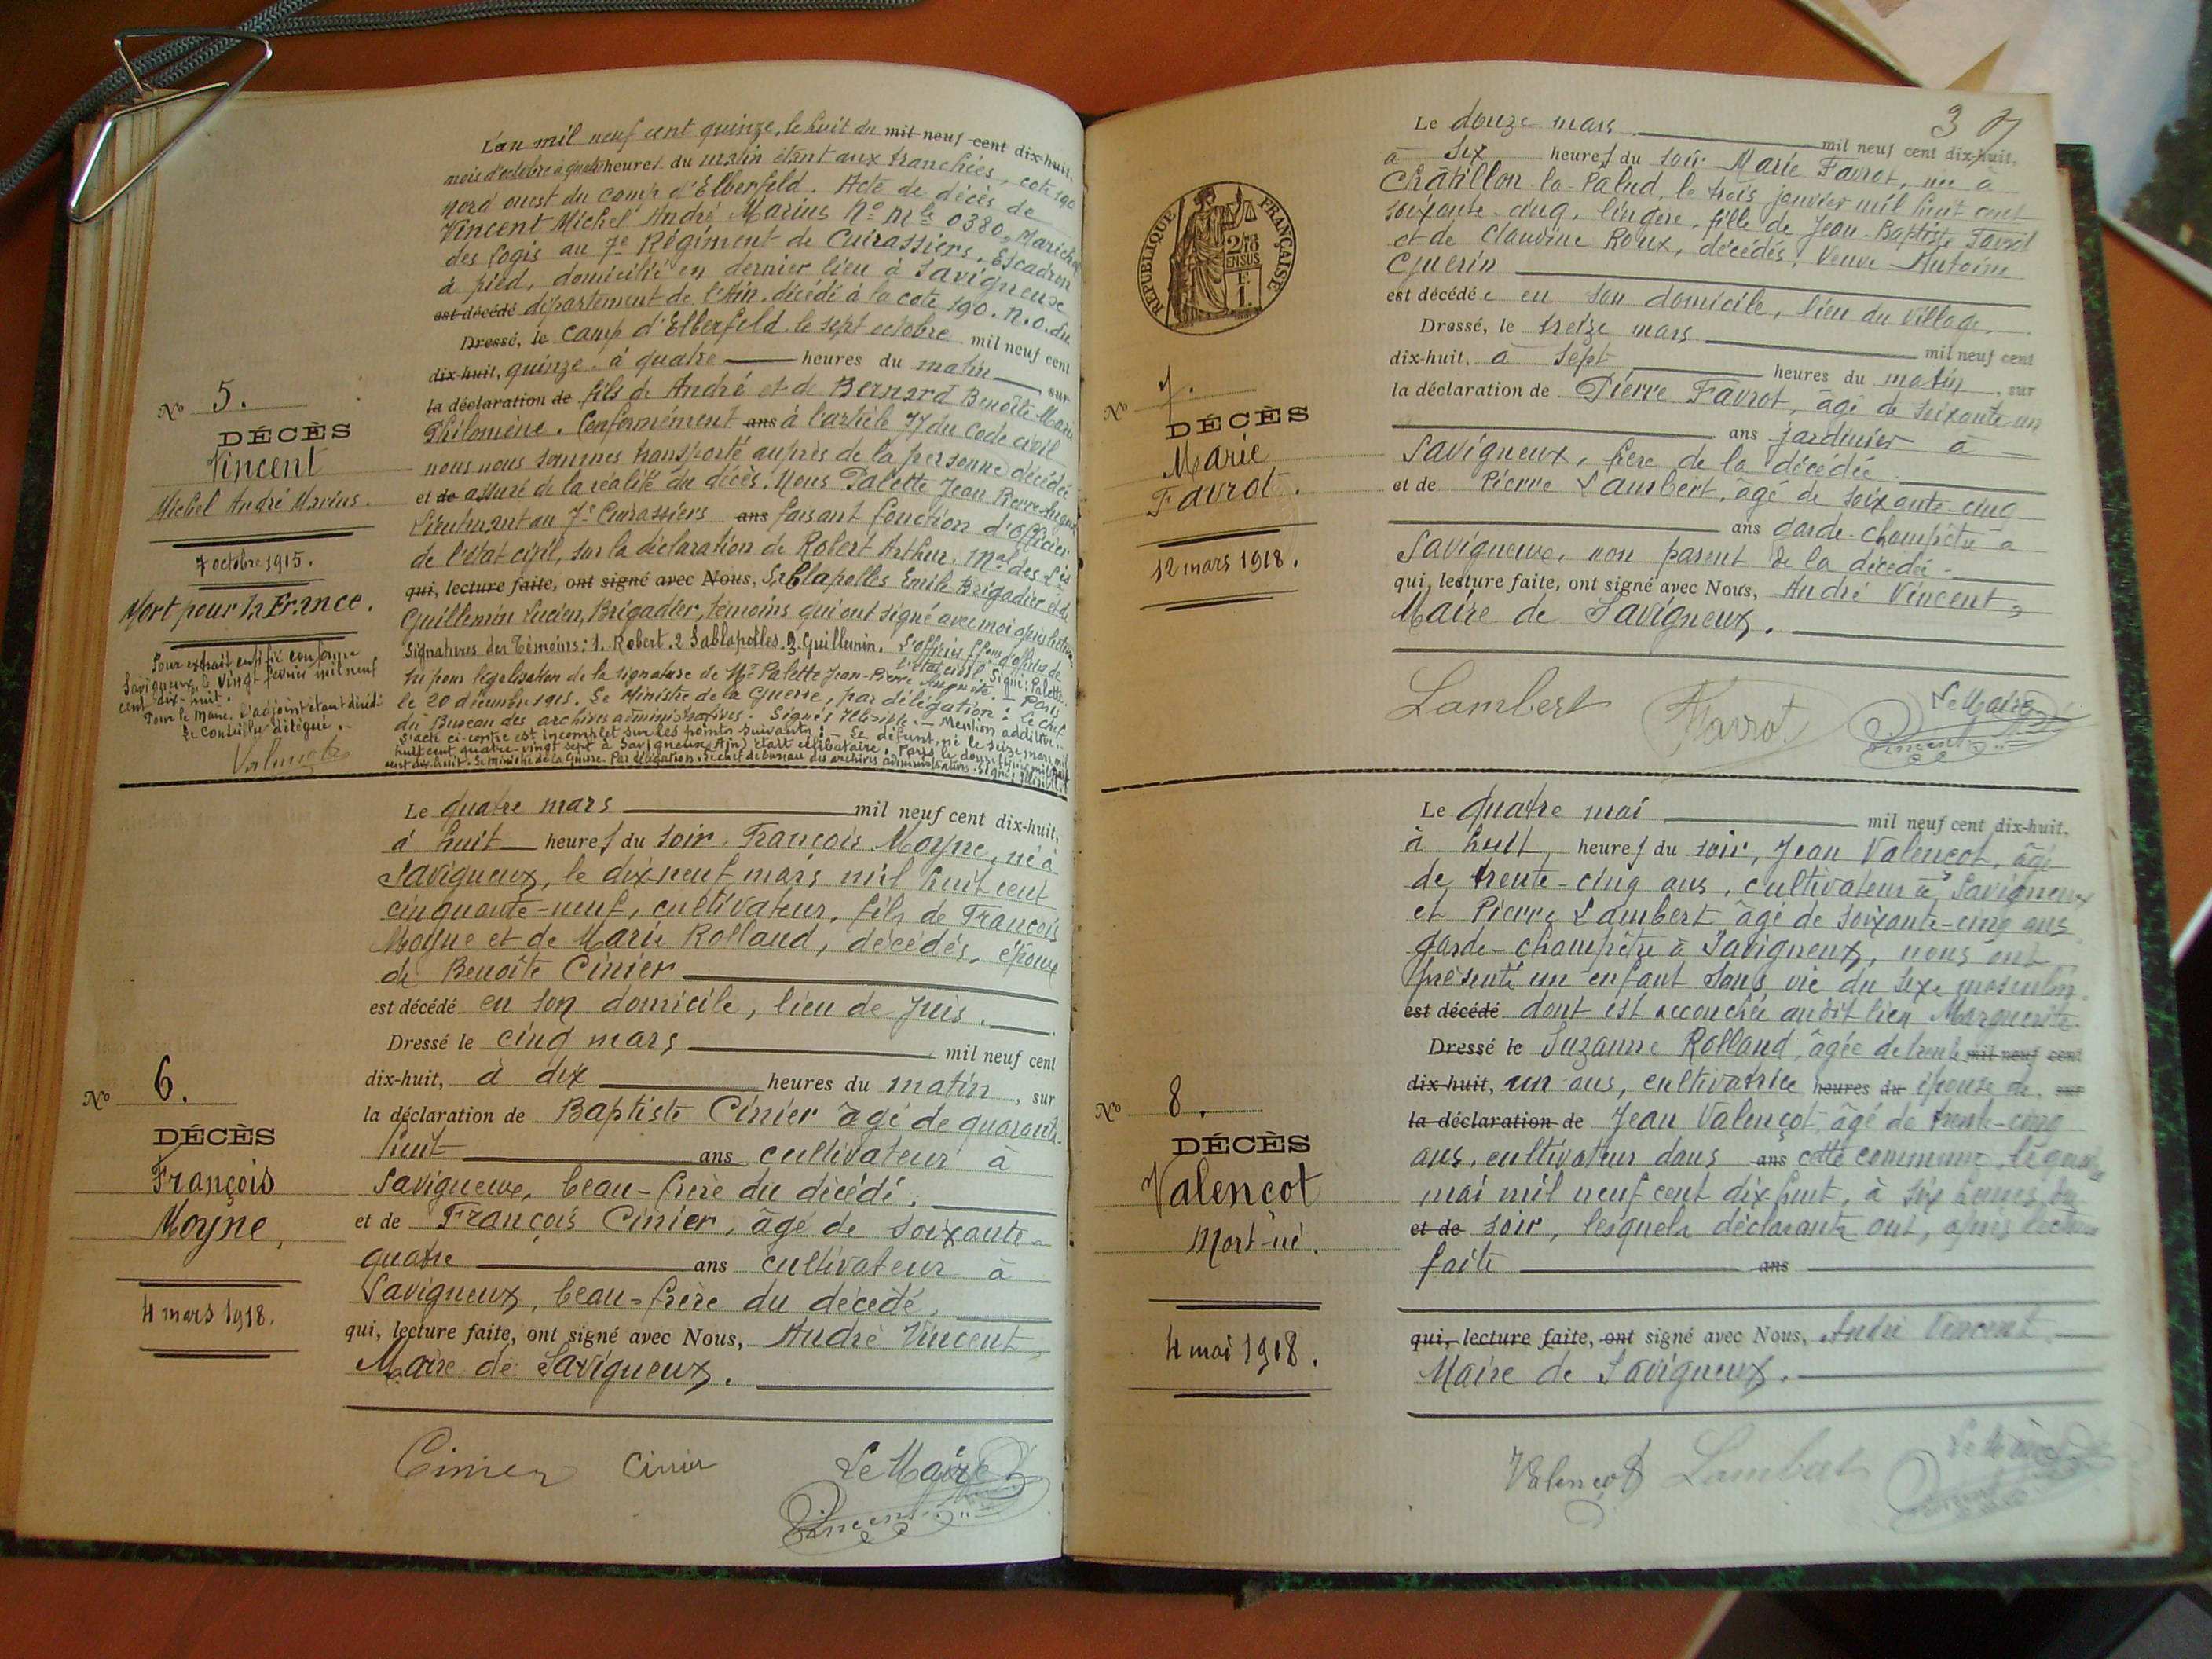 L'an mil neuf cent quinze, le huit du mil neuf cent dix-huit,
mois d'octobre à quatre heures du matin étant aux tranchées, cote 190
nord ouest du camp d'Elberfeld. Acte de décès de
Vincent Michel André Marius No Mle 0380, Maréchal
des logis au 7e Régiment de Cuirassiers, Escadron
à pied, domicilié en dernier lieu à Savigneux
est décédé département de l'Ain. décédé à la cote 190. N.O. du
Dressé, le camp d'Elberfeld. le sept octobre mil neuf cent
dix-huit, quinze. à quatre heures du matin sur
la déclaration de fils de André et de Bernard Benoîte Marie
Philomène. Conformément ans à l'article 77 du Code civil
nous nous sommes transporté auprès de la personne décédée
et de assuré de la réalité du décès. Nous Palette Jean Pierre Auguste
Lieutenant au 7e Cuirassiers ans faisant fonction d'Officier
de l'état civil, sur la déclaration de Robert Arthur. Mal des Lis
qui, lecture faite, ont signé avec Nous, Sablapolles Emile Brigadier et de
Guillemin Lucien, Brigadier, témoins qui ont signé avec moi après lecture.
Signatures des Témoins: 1. Robert. 2 Sablapolles. 3. Guillemin. L'officier
l'état civil. Signé: Palette.
Vu pour légalisation de la signature de Mr Palette Jean-Pierre Auguste. — Paris
le 20 décembre 1915. Le Ministre de la Guerre, par délégation: Le chef
du Bureau des archives administratives. Signé: Illisible. — Mention additive.
L'acte ci-contre est incomplet sur les points suivants: — Le défunt, né le seize mars mil
huit cent quatre-vingt sept à Savigneux (Ain) était célibataire. Paris le douze
cent dix huit. Le ministre de la Guerre. Par délégation. Le chef de bureau des archives administratives. Signé:
No 5.
DÉCÈS
Vincent
Michel André Marius.
7 octobre 1915.
Mort pour la France.
Pour extrait certifié conforme
Savigneux le vingt février mil neuf
cent dix-huit.
Pour le Maire. L'adjoint étant décédé
Le Conseiller délégué.
Le quatre mars mil neuf cent dix-huit,
à huit heures du soir. François Moyne, né à
Savigneux, le dix neuf mars mil huit cent
cinquante-neuf, cultivateur, fils de François
Moyne et de Marie Rolland, décédés, époux
de Benoîte Cinier
est décédé en son domicile, lieu de Juis.
Dressé le cinq mars mil neuf cent
dix-huit, à dix heures du matin, sur
la déclaration de Baptiste Cinier âgé de quarante
huit ans cultivateur à
Savigneux, beau-frère du décédé.
et de François Cinier, âgé de soixante-
quatre ans cultivateur à
Savigneux, beau-frère du décédé.
qui, lecture faite, ont signé avec Nous, André Vincent,
Maire de Savigneux.
No 6.
DÉCÈS
François
Moyne,
4 mars 1918.
Cinier Cinier Le Maire
Vincent
3
RÉPUBLIQUE FRANÇAISE
2/10
EN SUS
E
1.
Le douze mars mil neuf cent dix-huit,
à six heures du soir Marie Favrot, née à
Châtillon-la-Palud, le trois janvier mil huit cent
soixante-cinq, lingère, fille de Jean-Baptiste Favrot
et de Claudine Roux, décédés, Veuve Antoine
Guerin
est décédée en son domicile, lieu du Village.
Dressé, le treize mars mil neuf cent
dix-huit, à sept heures du matin, sur
la déclaration de Pierre Favrot, âgé de soixante-un
ans jardinier à
Savigneux, frère de la décédée
et de Pierre Lambert, âgé de soixante-cinq
ans garde-champêtre à
Savigneux, non parent de la décédée.
qui, lecture faite, ont signé avec Nous, André Vincent,
Maire de Savigneux.
No 7.
DÉCÈS
Marie
Favrot.
12 mars 1918.
Lambert Favrot Le Maire
Vincent
Le quatre mai mil neuf cent dix-huit,
à huit heures du soir, Jean Valençot, âgé
de trente-cinq ans, cultivateur à Savigneux
et Pierre Lambert âgé de soixante-cinq ans
garde-champêtre à Savigneux, nous ont
présenté un enfant sans vie du sexe masculin
est décédé dont est accouchée audit lieu Marguerite
Dressé le Suzanne Rolland, âgée de trente mil neuf cent
dix-huit, un ans, cultivatrice heures du épouse de sur
la déclaration de Jean Valençot, âgé de trente-cinq
ans, cultivateur dans ans cette commune, le quatre
mai mil neuf cent dix-huit, à six heures du
et de soir, lesquels déclarants ont, après lecture
faite ans
qui, lecture faite, ont signé avec Nous, André Vincent
Maire de Savigneux.
No 8.
DÉCÈS
Valençot
Mort-né.
4 mai 1918.
Valençot Lambert Le Maire
Vincent